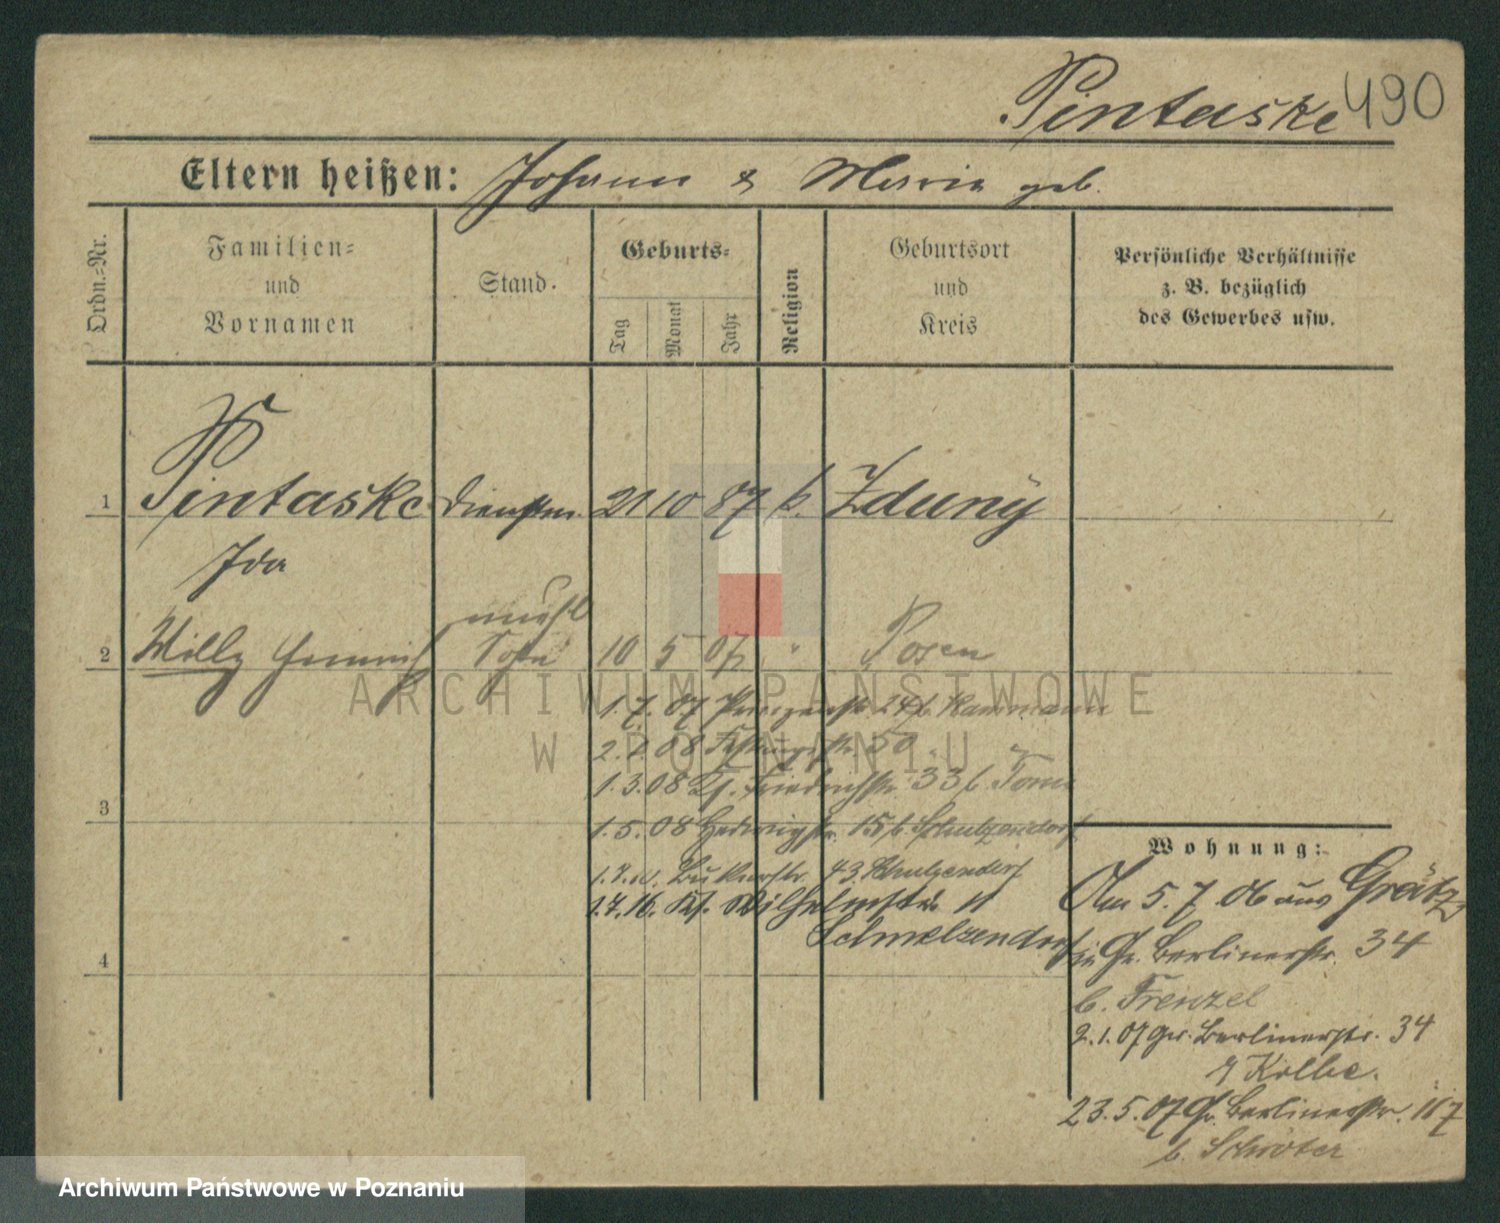 Pintaske 490
Eltern heißen: Johann & Maria geb.
Ordn.=Nr.
Familien=
und
Vornamen
Stand.
Geburts=
Tag
Monat
Jahr
Religion
Geburtsort
und
Kreis
Persönliche Verhältnisse
z. B. bezüglich
des Gewerbes usw.
1 Pintaske Dienstm. 21 10 87 k. Zduny
Ida
2 Willy Heinrich 10 5 07 " Posen
1.7.07 Prinzenstr. 24 b. Kammann
2.1.08 50
1.3.08 Kl. Friedrichstr. 33 b.
3
1.5.08 Hedwigstr. 15 b. Schulzendorf
1.7.10. Bukerstr. 43 Schulzendorf
1.7.16. Kl. Wilhelmstr. 11
Schmelzendorf
4
Wohnung:
Am 5.7.06 aus Grätz
in Gr. Berlinerstr. 34
b. Frenzel
2.1.07 Gr. Berlinerstr. 34
b. Kolbe.
23.5.07 Gr. Berlinerstr. 117
b. Schröter
ARCHIWUM PAŃSTWOWE
W POZNANIU
Archiwum Państwowe w Poznaniu